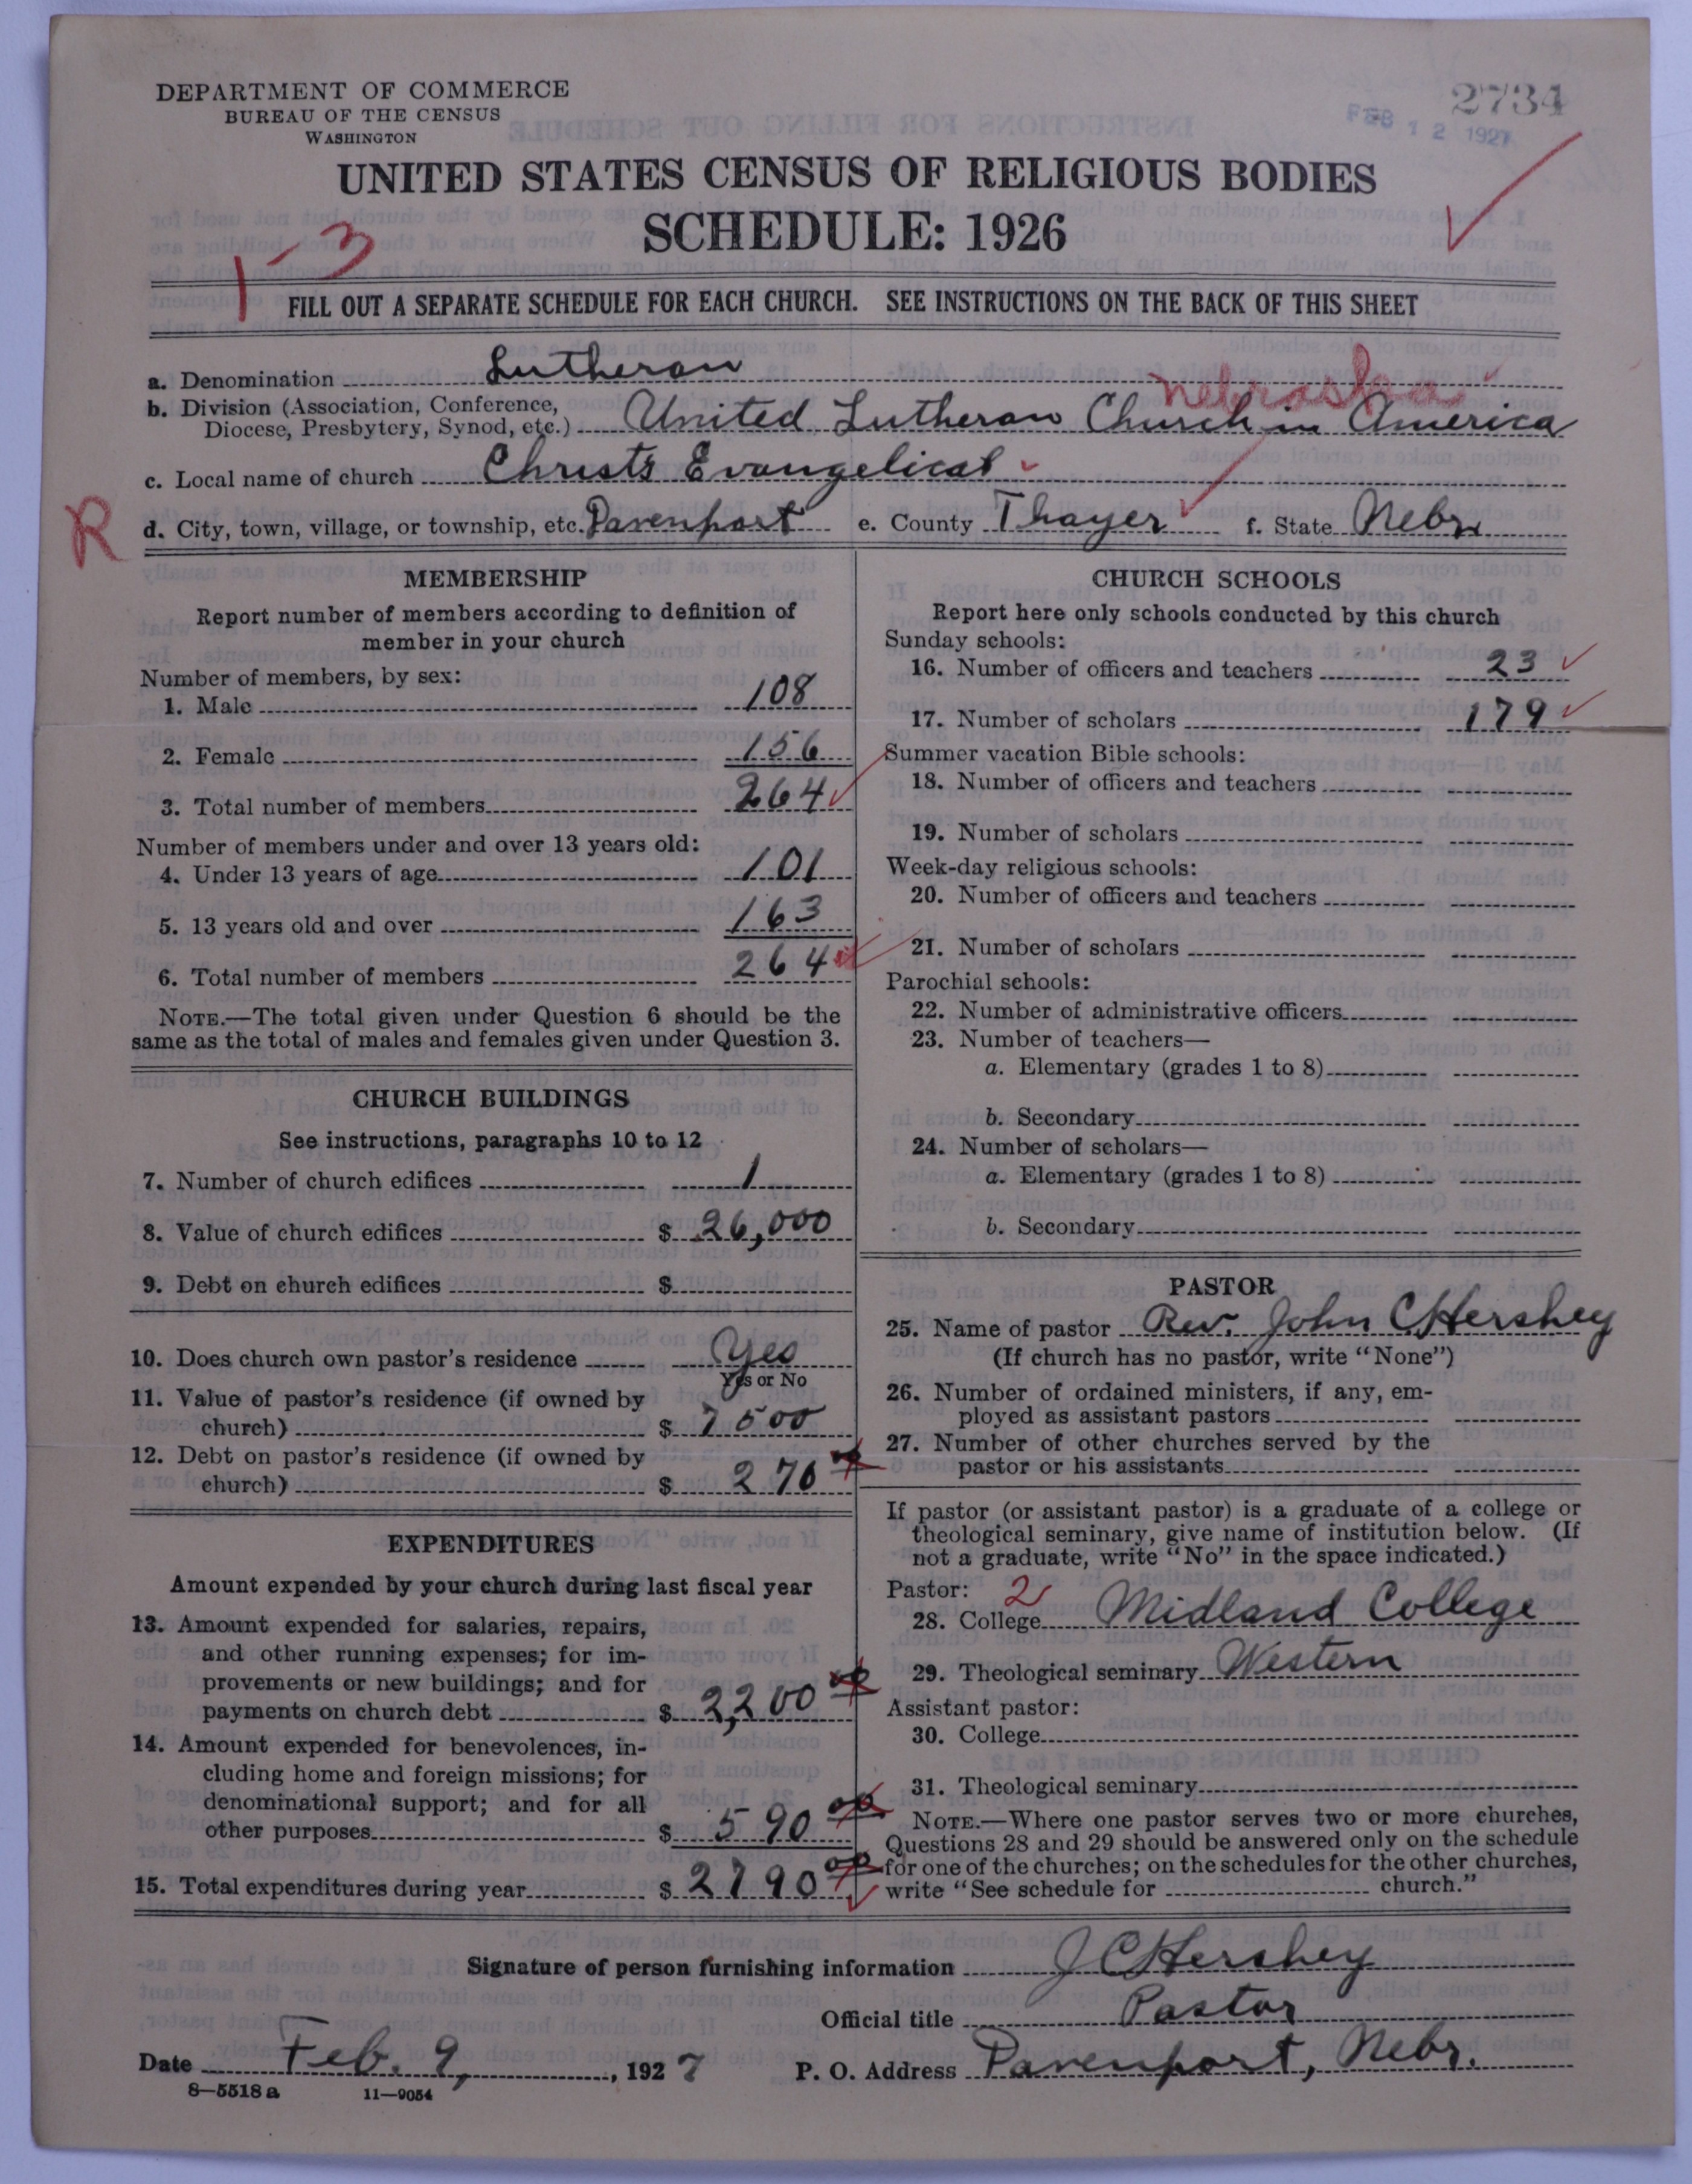 DEPARTMENT OF COMMERCE
BUREAU OF THE CENSUS
WASHINGTON
2734
FEB 12 1927
UNITED STATES CENSUS OF RELIGIOUS BODIES
SCHEDULE: 1926
1-3
FILL OUT A SEPARATE SCHEDULE FOR EACH CHURCH. SEE INSTRUCTIONS ON THE BACK OF THIS SHEET
a. Denomination Lutheran
Nebraska
b. Division (Association, Conference,
Diocese, Presbytery, Synod, etc.) United Lutheran Church in America
c. Local name of church Christs Evangelical
R
d. City, town, village, or township, etc. Davenport e. County Thayer f. State Nebr.
MEMBERSHIP
Report number of members according to definition of
member in your church
Number of members, by sex:
1. Male 108
2. Female 156
3. Total number of members 264
Number of members under and over 13 years old:
4. Under 13 years of age 101
5. 13 years old and over 163
6. Total number of members 264
NOTE.—The total given under Question 6 should be the
same as the total of males and females given under Question 3.
CHURCH BUILDINGS
See instructions, paragraphs 10 to 12
7. Number of church edifices 1
8. Value of church edifices $ 26,000
9. Debt on church edifices $
10. Does church own pastor's residence Yes
Yes or No
11. Value of pastor's residence (if owned by
church) $ 7500
12. Debt on pastor's residence (if owned by
church) $ 270
EXPENDITURES
Amount expended by your church during last fiscal year
13. Amount expended for salaries, repairs,
and other running expenses; for im-
provements or new buildings; and for
payments on church debt $ 2,200 00
14. Amount expended for benevolences, in-
cluding home and foreign missions; for
denominational support; and for all
other purposes $ 590 00
15. Total expenditures during year $ 2790 00
CHURCH SCHOOLS
Report here only schools conducted by this church
Sunday schools:
16. Number of officers and teachers 23
17. Number of scholars 179
Summer vacation Bible schools:
18. Number of officers and teachers
19. Number of scholars
Week-day religious schools:
20. Number of officers and teachers
21. Number of scholars
Parochial schools:
22. Number of administrative officers
23. Number of teachers—
a. Elementary (grades 1 to 8)
b. Secondary
24. Number of scholars—
a. Elementary (grades 1 to 8)
b. Secondary
PASTOR
25. Name of pastor Rev. John C Hershey
(If church has no pastor, write "None")
26. Number of ordained ministers, if any, em-
ployed as assistant pastors
27. Number of other churches served by the
pastor or his assistants
If pastor (or assistant pastor) is a graduate of a college or
theological seminary, give name of institution below. (If
not a graduate, write "No" in the space indicated.)
Pastor: 2
28. College Midland College
29. Theological seminary Western
Assistant pastor:
30. College
31. Theological seminary
NOTE.—Where one pastor serves two or more churches,
Questions 28 and 29 should be answered only on the schedule
for one of the churches; on the schedules for the other churches,
write "See schedule for church."
Signature of person furnishing information J C Hershey
Official title Pastor
Date Feb. 9, 1927 P. O. Address Davenport, Nebr.
8—5518a 11—9054